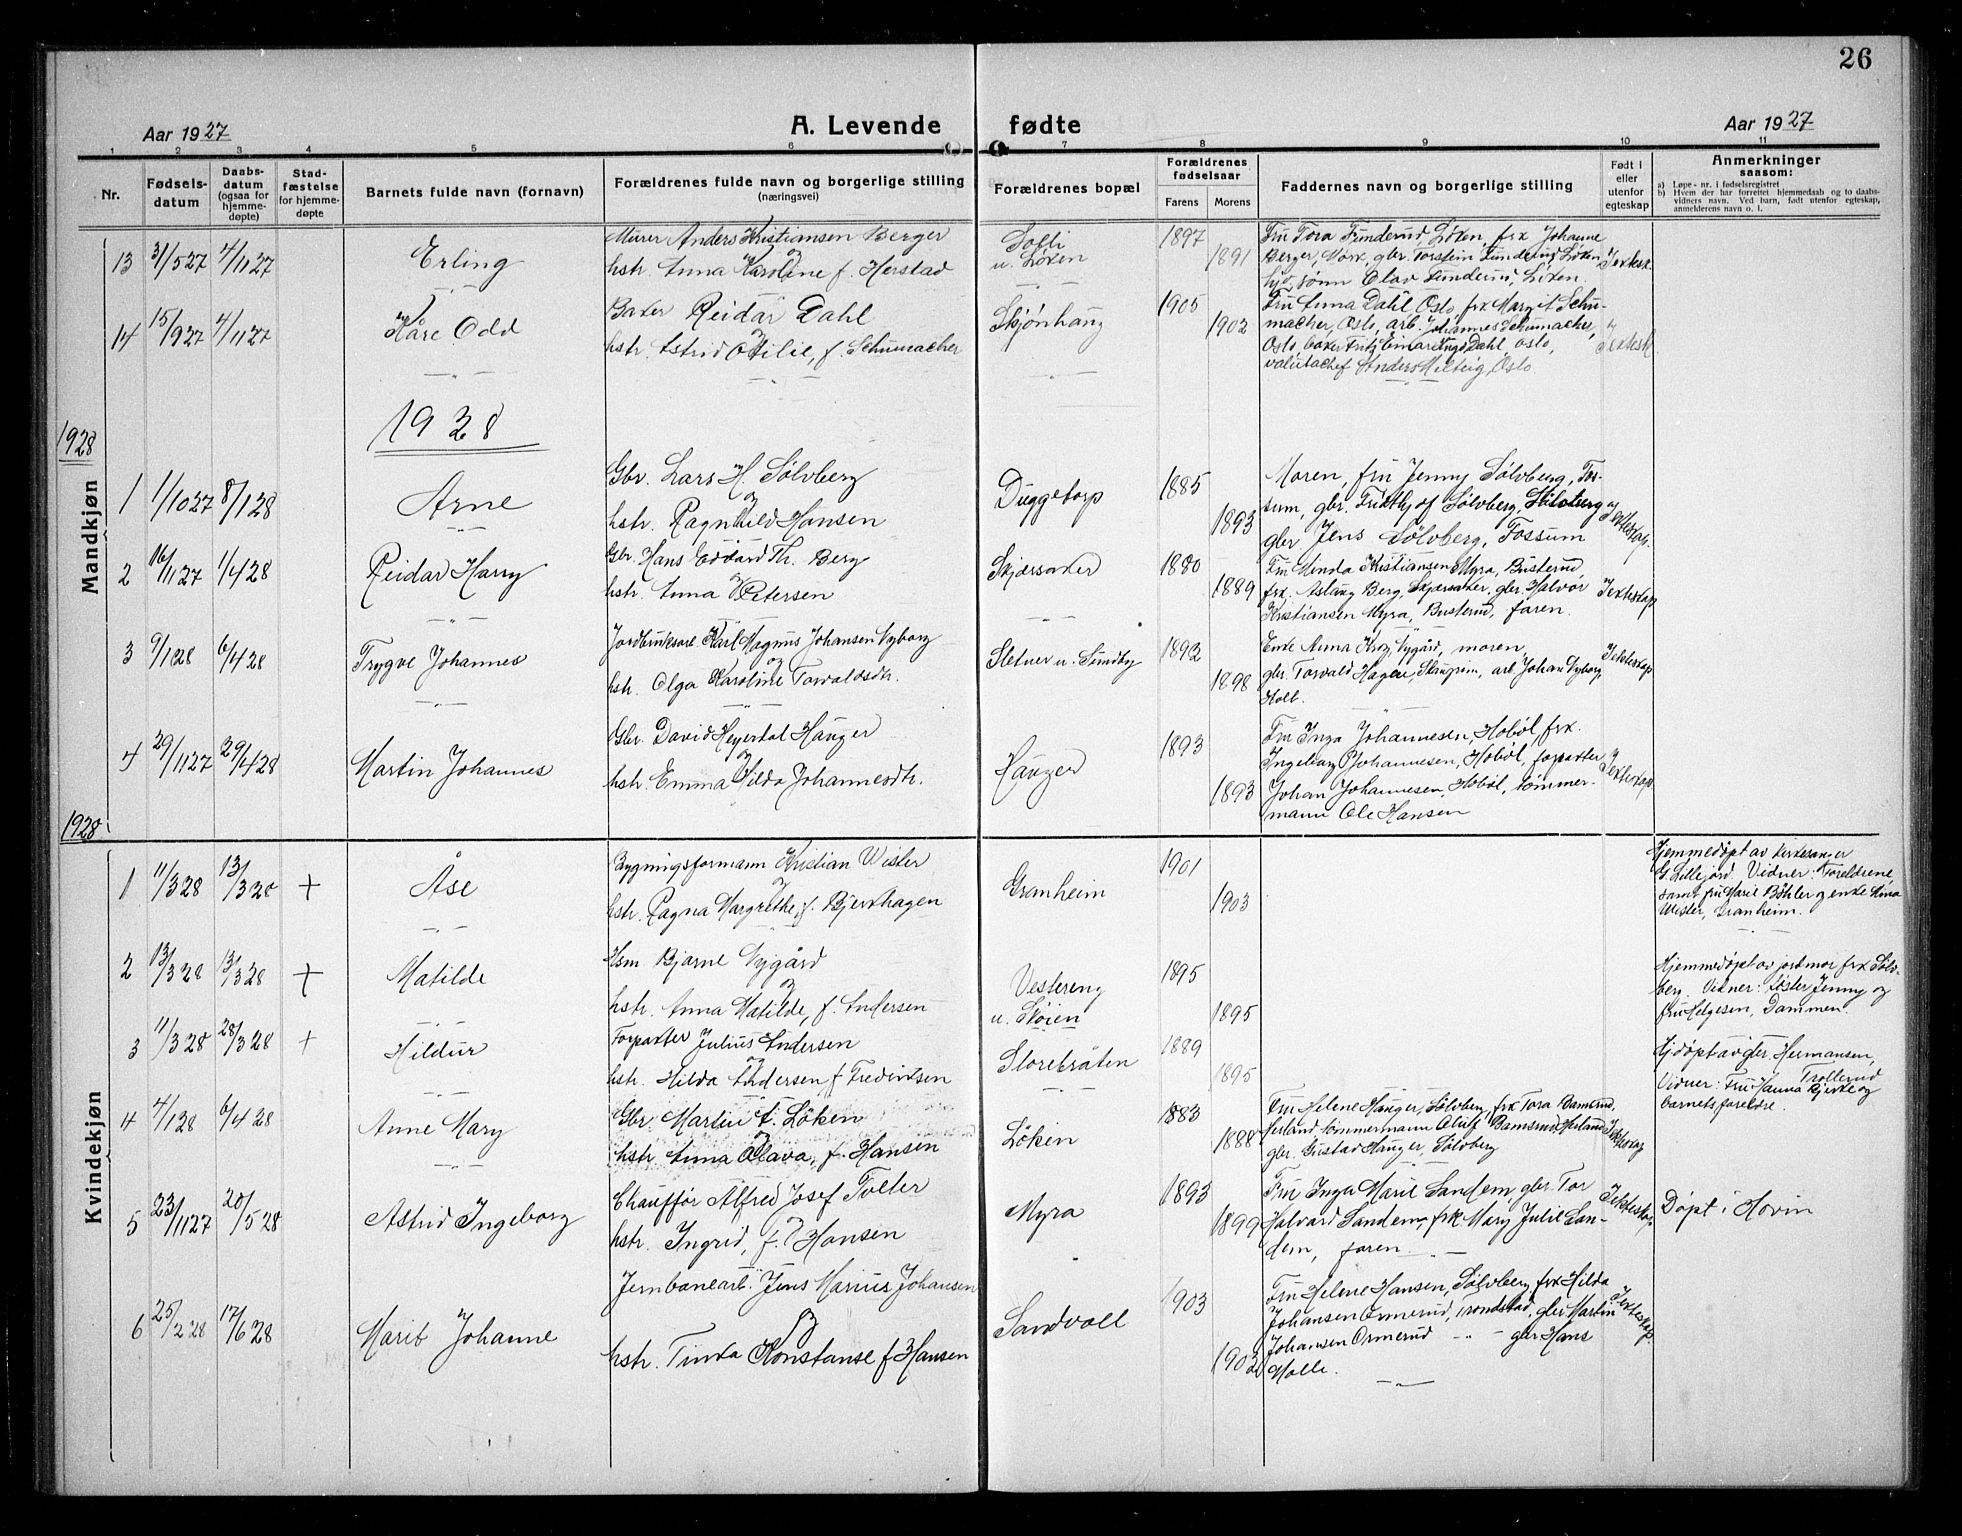 26
Aar 1927
A. Levende fødte
Aar 1927
1 2 3 4 5 6 7 8 9 10 11
Nr.
Fødselsdatum
Daabsdatum (ogsaa for hjemmedøpte)
Stadfæstelse for hjemmedøpte
Barnets fulde navn (fornavn)
Forældrenes fulde navn og borgerlige stilling
(næringsvei)
Forældrenes bopæl
Forældrenes fødselsaar
Farens Morens
Faddernes navn og borgerlige stilling
Født i eller utenfor egteskap
Anmerkninger saasom:
a) Løpe-nr. i fødselsregistret
b) Hvem der har forrettet hjemmedaab og to daabsvidners navn. Ved barn, født utenfor egteskap, anmelderens navn o. l.
13 31/5 27 4/11 27 Erling
Murer Anders Kristiansen Berger
og
hstr. Anna Karoline f. Herstad
Solli
u. Løken
1897
1891
Fru Tora Funderud, Løken, frk Johanne
Berger, gbr. Torstein Funderud Løken
sønn Olav Funderud, Løken.
14 15/9 27 4/11 27 Kåre Odd
Baker Reidar Dahl
og
hstr. Astrid Otilie, f. Schumacher
Skjønhaug
1905
1902
Fru Anna Dahl Oslo, frk Margit Schu-
macher, Oslo, arb. Johannes Schumacher,
Oslo, baker Einar Dahl Oslo,
valutachef Anders Oslo
1928
1928
Mandkjøn
1 1/10 27 8/1 28 Arne
Gbr. Lars H. Sølvberg
og
hstr. Ragnhild Hansen
Duggetorp
1885
1893
Moren, fru Jenny Sølvberg, Fos-
sum, gbr. Fridtjof Sølvberg, Sølvberg
gbr Jens Sølvberg, Fossum
2 16/11 27 1/4 28 Reidar Harry
Gbr. Hans Edvard Th. Berg
og
hstr. Anna Petersen
Skjærsaker
1880
1889
Fru Minda Kristiansen Myra, Busterud
frk. Aslaug Berg, Skjærsaker, gbr. Halvor
Kristiansen Myra, Busterud, faren.
Iekteskap
3 9/1 28 6/4 28 Trygve Johannes
Jordbruksarb. Karl Magnus Johansen Nyborg
og
hstr. Olga Karoline Torvaldsdtr.
Sletner u. Sundby
1892
1898
Enke Anna Nygård, moren,
gbr. Torvald Hagen, arb. Johan Nyborg,
Iekteskap
4 29/11 27 29/4 28 Martin Johannes
Gbr. David Heyerdal Hauger
og
hstr. Emma Hilda Johannesdtr.
Hauger
1893
1893
Fru Inga Johannesen, Hobøl, frk.
Ingeborg Johannesen, Hobøl, forpakter
Johan Johannesen, Hobøl, tømmer-
mann Ole Hansen
Iekteskap
1928
Kvindekjøn
1 11/3 28 13/3 28 + Åse
Bygningsformann Kristian Wister
og
hstr. Ragna Margrethe, f. Bjerkhagen
Granheim
1901
1903
Hjemmedøpt av kirkesanger
G. Lillejord. Vidner: Foreldrene
samt fru Marie Bøhler og enke
Wister, Granheim.
2 13/3 28 13/3 28 + Matilde
Hsm Bjarne Nygård
og
hstr. Anna Matilde, f. Andersen
Vestereng
u. Skøien
1895
1895
Hjemmedøpt av jordmor frk Sølv-
berg, Vidner: søster Jenny og
fru Helgesen, Dammen.
3 11/3 28 28/3 28 + Hildur
Forpakter Julius Andersen
og
hstr. Hilda Andersen f Fredriksen
Storebråten
1889
1895
Hjdøpt av gbr. Hermansen,
Trollerud
Vidner: Fru Hanna Bjerke og
barnets foreldre.
4 4/1 28 6/4 28 Anne Mary
Gbr. Martin A. Løken
og
hstr Anna Olava, f. Hansen
Løken
1883
1888
Fru Helene Hauger, Sølvberg, frk Tora Bamsrud,
Herland tømmermann Bamsrud, Herland
gbr. Gustad Hauger, Sølvberg
5 23/11 27 20/5 28 Astrid Ingeborg
Chauffør Alfred Josef Tveter
hstr. Ingrid, f. Hansen
Myra
1893
1899
Fru Inga Marie Sandem, gbr. Tor
Halvard Sandem, frk Mary Julie San-
dem, faren.
Iekteskap,
Døpt i Hovin
6 25/2 28 17/6 28 Marit Johanne
Jernbanearb. Jens Marius Johansen
og
hstr. Tinda Konstanse f Hansen
Sandvoll
1903
1902
Fru Helene Hansen, Sølvberg, frk Hilda
Johansen Ormerud, Trondstad, gbr Martin
Johansen Ormerud gbr Hans
Molle.
Iekteskap.